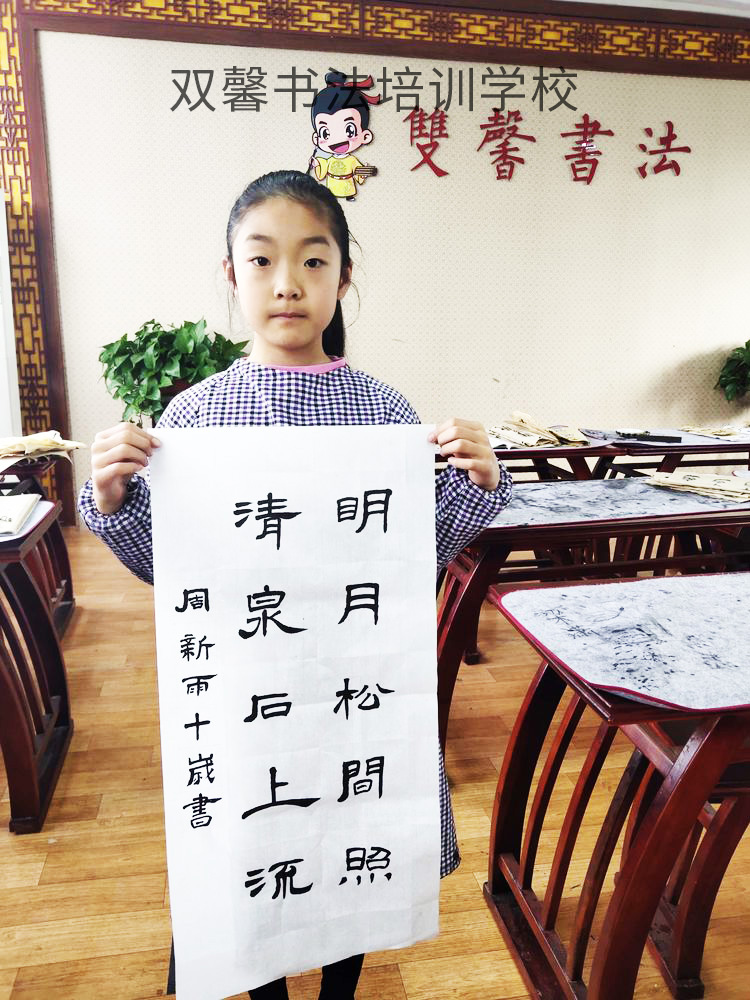 双馨书法培训学校
雙馨書法
明月松間照
清泉石上流
周新雨十歲書